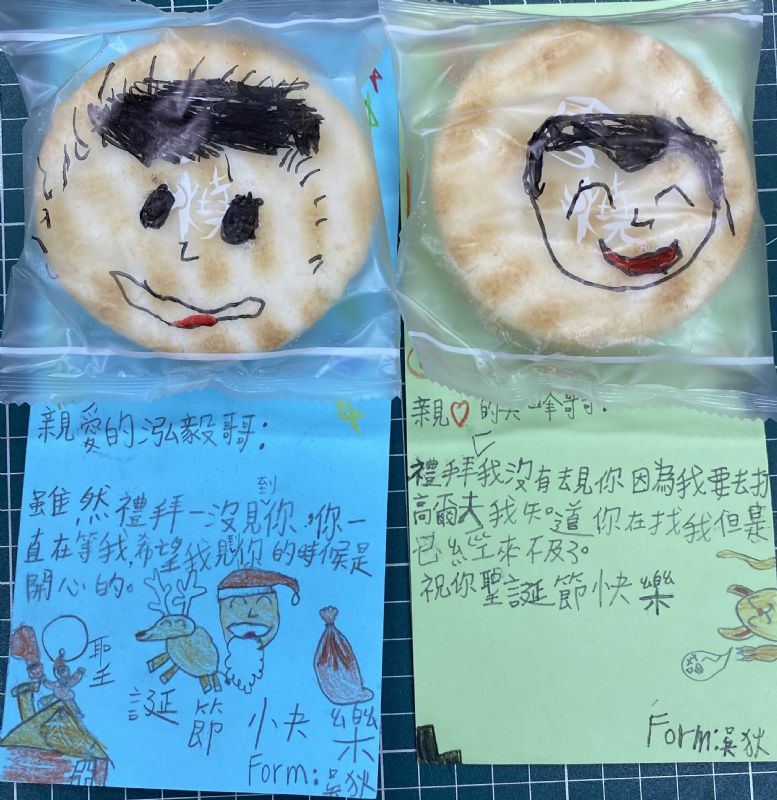 燒
親愛的泓毅哥:
到
雖然禮拜一沒見你,你一
直在等我,希望我見到你的時候是
開心的。
聖
誕節快樂
Form:吳狄
燒
親♡的 峰哥:
禮拜我沒有去見你因為我要去打
高爾夫我知道你在找我但是
已經來不及了。
祝你聖誕節快樂
Form:吳狄